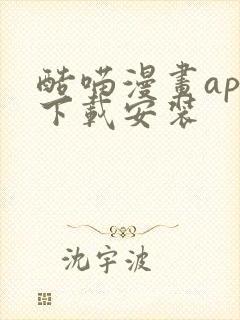 酷喵漫畫ap
下載安裝
沈宇波